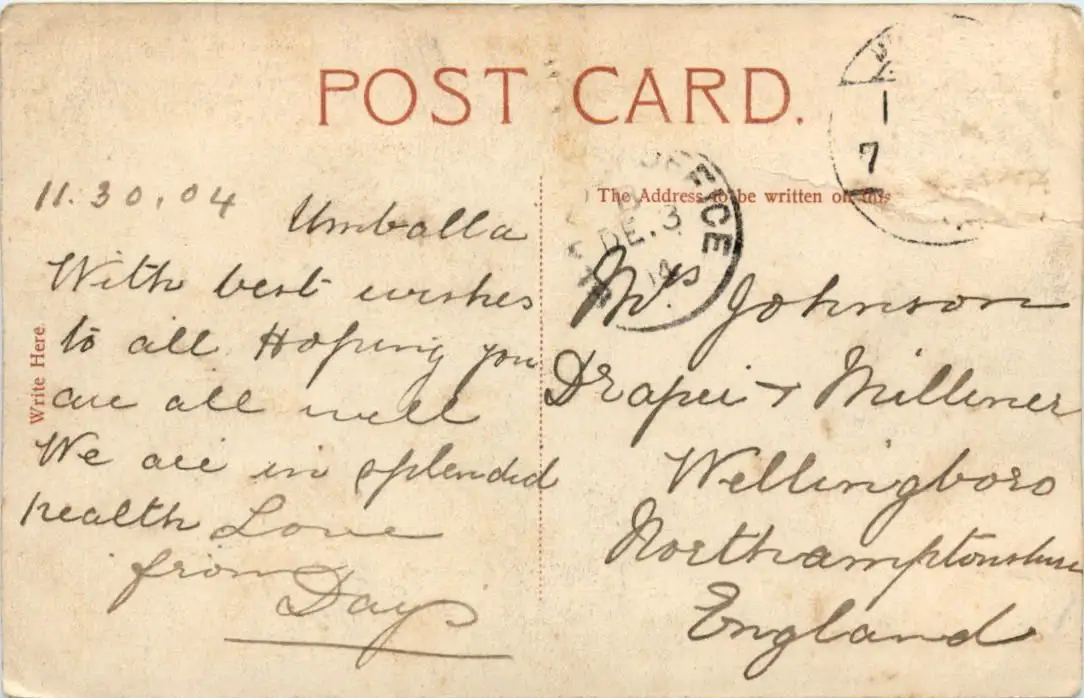 POST CARD.
11.30.04
Umballa
With best wishes
to all Hoping you
are all well
We are in splendid
health Love
from
Days
Write Here.
The Address to be written on this
Mrs. Johnson
Draper + Milliner
Wellingboro
Northamptonshire
England
OFFICE
DE. 3
04
1
7